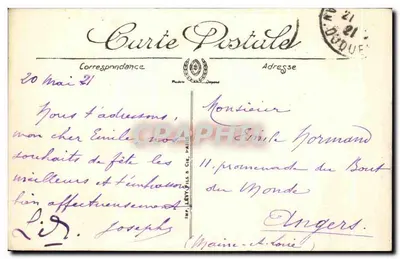 Carte Postale
Correspondance
Adresse
21
21
20 Mai 21
Nous t'adressons,
mon cher Emile, nos
souhaits de fête les
meilleurs et t'embrassons
bien affectueusement
Joseph
Monsieur
Emile Normand
11. promenade du Bout
du Monde
Angers.
(Maine-et-Loire)
CARTORUM
LÉVY FILS & Cie